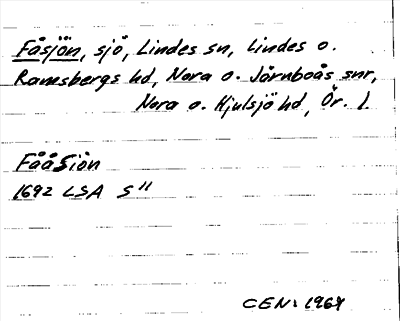 Fåsjön, sjö, Lindes sn, Lindes o.
Ramsbergs hd, Nora o. Järnboås snr,
Nora o. Hjulsjö hd, Ör. l.
Fååsiön
1692 LSA S"
CEN: 1964